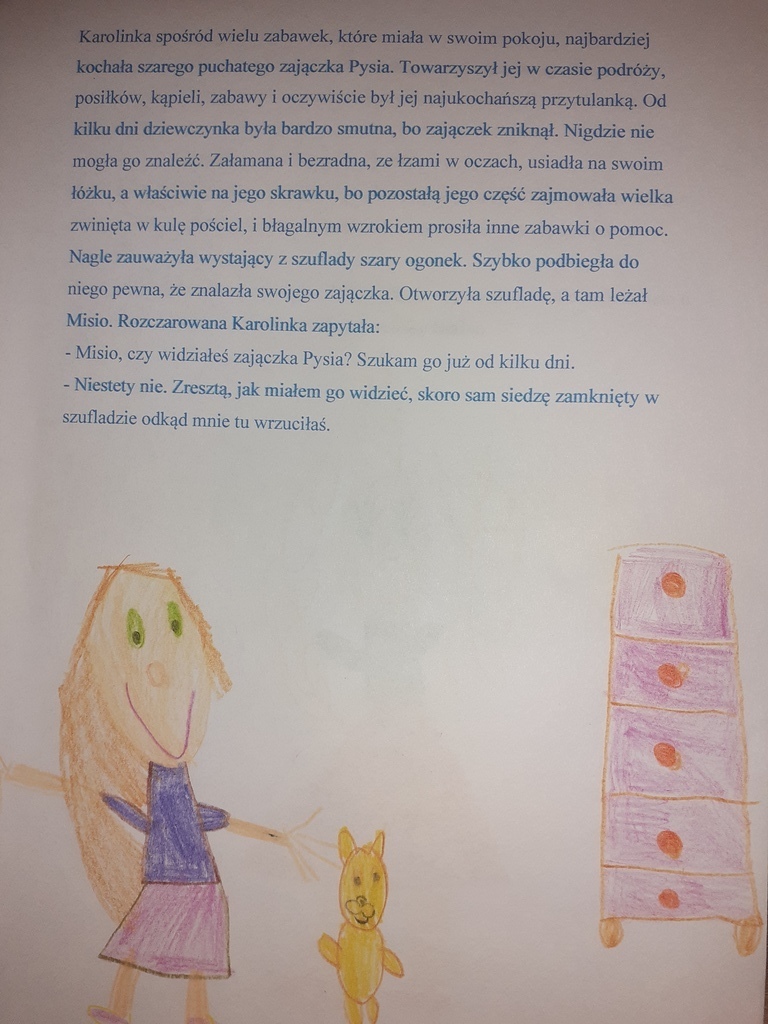 Karolinka spośród wielu zabawek, które miała w swoim pokoju, najbardziej
kochała szarego puchatego zajączka Pysia. Towarzyszył jej w czasie podróży,
posiłków, kąpieli, zabawy i oczywiście był jej najukochańszą przytulanką. Od
kilku dni dziewczynka była bardzo smutna, bo zajączek zniknął. Nigdzie nie
mogła go znaleźć. Załamana i bezradna, ze łzami w oczach, usiadła na swoim
łóżku, a właściwie na jego skrawku, bo pozostałą jego część zajmowała wielka
zwinięta w kulę pościel, i błagalnym wzrokiem prosiła inne zabawki o pomoc.
Nagle zauważyła wystający z szuflady szary ogonek. Szybko podbiegła do
niego pewna, że znalazła swojego zajączka. Otworzyła szufladę, a tam leżał
Misio. Rozczarowana Karolinka zapytała:
- Misio, czy widziałeś zajączka Pysia? Szukam go już od kilku dni.
- Niestety nie. Zresztą, jak miałem go widzieć, skoro sam siedzę zamknięty w
szufladzie odkąd mnie tu wrzuciłaś.